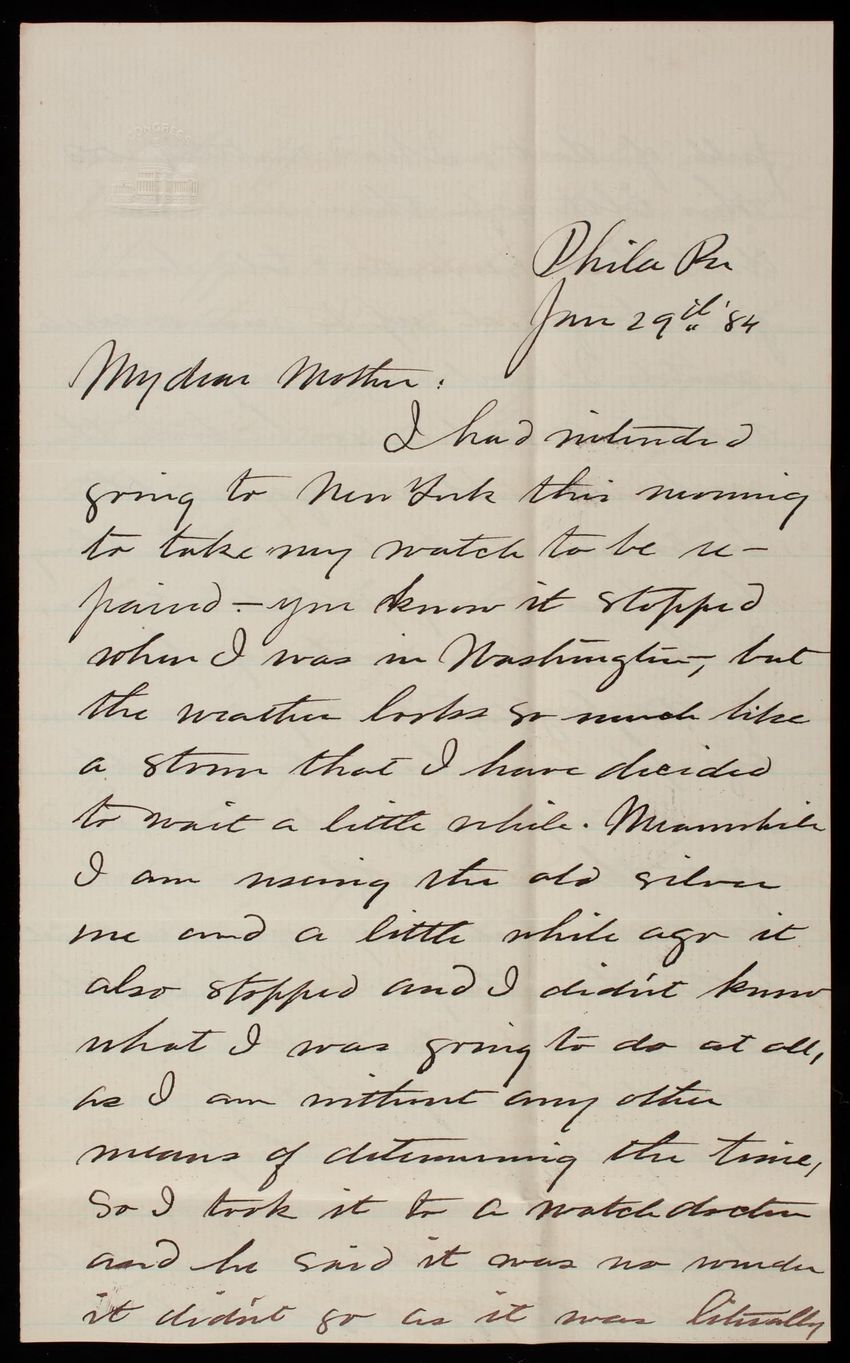 CONGRESS
Phila Pa
Jan 29th '84
My dear Mother:
I had intended
going to New York this morning
to take my watch to be re-
paired - you know it stopped
when I was in Washington, but
the weather looks so much like
a storm that I have decided
to wait a little while. Meanwhile
I am using the old silver
one and a little while ago it
also stopped and I didn't know
what I was going to do at all,
as I am without any other
means of determining the time,
So I took it to a watch doctor
and he said it was no wonder
it didn't go as it was literally